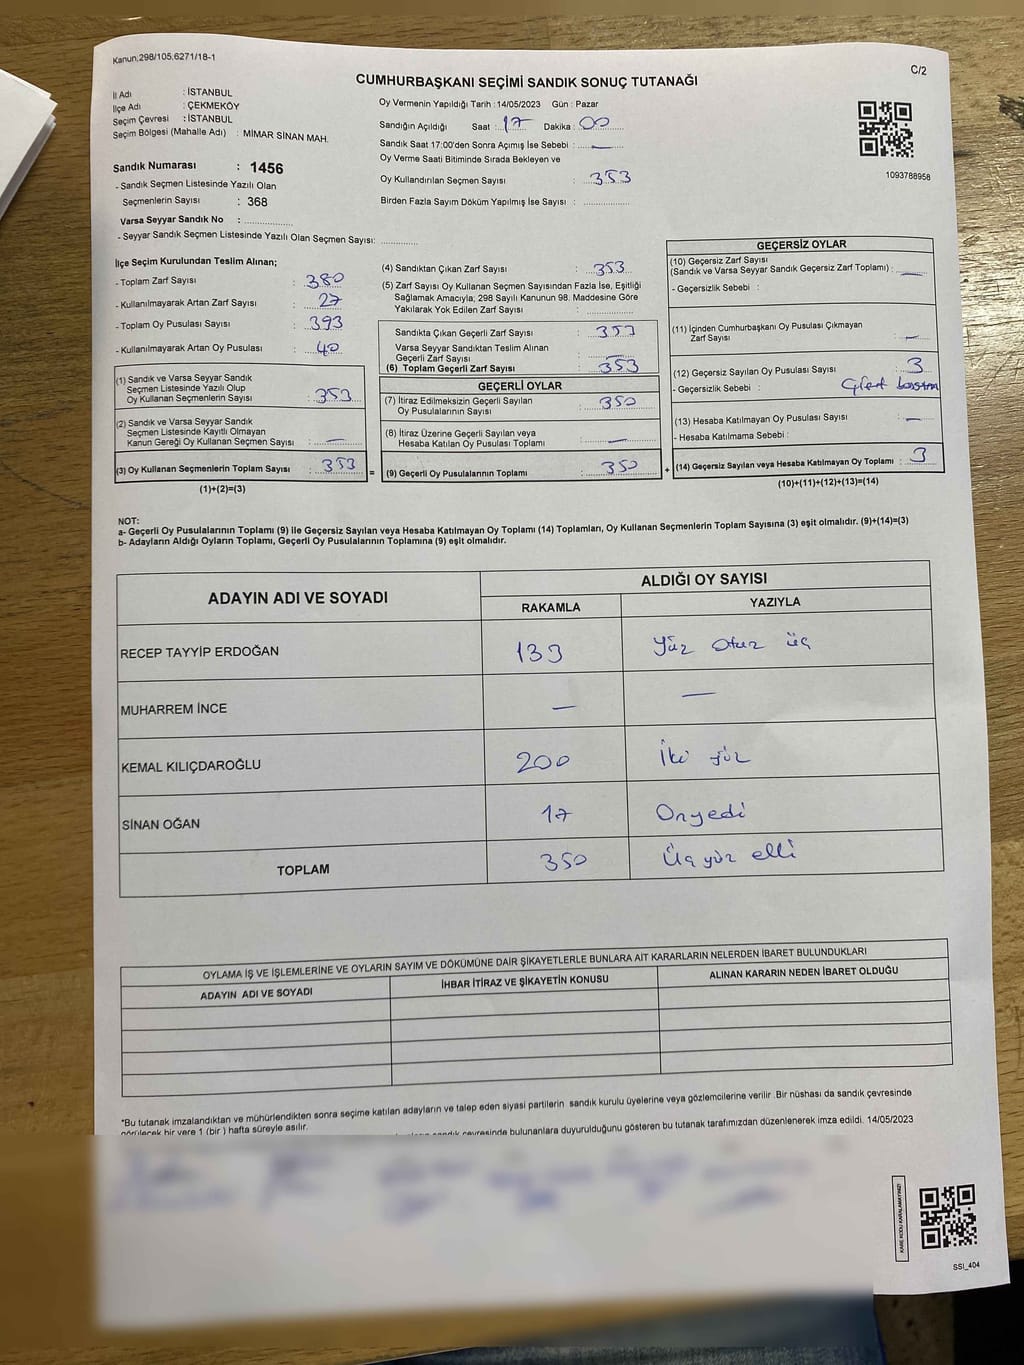 Kanun:298/105,6271/18-1
C/2
CUMHURBAŞKANI SEÇİMİ SANDIK SONUÇ TUTANAĞI
İl Adı : İSTANBUL
İlçe Adı : ÇEKMEKÖY
Seçim Çevresi : İSTANBUL
Seçim Bölgesi (Mahalle Adı) : MİMAR SİNAN MAH.
Sandık Numarası : 1456
- Sandık Seçmen Listesinde Yazılı Olan
Seçmenlerin Sayısı : 368
Varsa Seyyar Sandık No : ..............
- Seyyar Sandık Seçmen Listesinde Yazılı Olan Seçmen Sayısı: ............
Oy Vermenin Yapıldığı Tarih : 14/05/2023 Gün : Pazar
Sandığın Açıldığı Saat : 17 Dakika : 00
Sandık Saat 17:00'den Sonra Açımış İse Sebebi : —
Oy Verme Saati Bitiminde Sırada Bekleyen ve
Oy Kullandırılan Seçmen Sayısı : 353
Birden Fazla Sayım Döküm Yapılmış İse Sayısı : ..............
1093788958
İlçe Seçim Kurulundan Teslim Alınan;
- Toplam Zarf Sayısı : 380
- Kullanılmayarak Artan Zarf Sayısı : 27
- Toplam Oy Pusulası Sayısı : 393
- Kullanılmayarak Artan Oy Pusulası : 40
(1) Sandık ve Varsa Seyyar Sandık
Seçmen Listesinde Yazılı Olup
Oy Kullanan Seçmenlerin Sayısı : 353
(2) Sandık ve Varsa Seyyar Sandık
Seçmen Listesinde Kayıtlı Olmayan
Kanun Gereği Oy Kullanan Seçmen Sayısı : —
(3) Oy Kullanan Seçmenlerin Toplam Sayısı : 353 =
(1)+(2)=(3)
(4) Sandıktan Çıkan Zarf Sayısı : 353
(5) Zarf Sayısı Oy Kullanan Seçmen Sayısından Fazla İse, Eşitliği
Sağlamak Amacıyla; 298 Sayılı Kanunun 98. Maddesine Göre
Yakılarak Yok Edilen Zarf Sayısı : ..............
Sandıkta Çıkan Geçerli Zarf Sayısı : 353
Varsa Seyyar Sandıktan Teslim Alınan
Geçerli Zarf Sayısı : ..............
(6) Toplam Geçerli Zarf Sayısı : 353
GEÇERLİ OYLAR
(7) İtiraz Edilmeksizin Geçerli Sayılan
Oy Pusulalarının Sayısı : 350
(8) İtiraz Üzerine Geçerli Sayılan veya
Hesaba Katılan Oy Pusulası Toplamı : —
(9) Geçerli Oy Pusulalarının Toplamı : 350 +
GEÇERSİZ OYLAR
(10) Geçersiz Zarf Sayısı
(Sandık ve Varsa Seyyar Sandık Geçersiz Zarf Toplamı) : —
- Geçersizlik Sebebi :
(11) İçinden Cumhurbaşkanı Oy Pusulası Çıkmayan
Zarf Sayısı : —
(12) Geçersiz Sayılan Oy Pusulası Sayısı : 3
- Geçersizlik Sebebi :
(13) Hesaba Katılmayan Oy Pusulası Sayısı : —
- Hesaba Katılmama Sebebi :
(14) Geçersiz Sayılan veya Hesaba Katılmayan Oy Toplamı : 3
(10)+(11)+(12)+(13)=(14)
NOT:
a- Geçerli Oy Pusulalarının Toplamı (9) ile Geçersiz Sayılan veya Hesaba Katılmayan Oy Toplamı (14) Toplamları, Oy Kullanan Seçmenlerin Toplam Sayısına (3) eşit olmalıdır. (9)+(14)=(3)
b- Adayların Aldığı Oyların Toplamı, Geçerli Oy Pusulalarının Toplamına (9) eşit olmalıdır.
ADAYIN ADI VE SOYADI
ALDIĞI OY SAYISI
RAKAMLA YAZIYLA
RECEP TAYYİP ERDOĞAN 133 Yüz otuz üç
MUHARREM İNCE — —
KEMAL KILIÇDAROĞLU 200 İki yüz
SİNAN OĞAN 17 Onyedi
TOPLAM 350 Üç yüz elli
OYLAMA İŞ VE İŞLEMLERİNE VE OYLARIN SAYIM VE DÖKÜMÜNE DAİR ŞİKAYETLERLE BUNLARA AİT KARARLARIN NELERDEN İBARET BULUNDUKLARI
ADAYIN ADI VE SOYADI İHBAR İTİRAZ VE ŞİKAYETİN KONUSU ALINAN KARARIN NEDEN İBARET OLDUĞU
*Bu tutanak imzalandıktan ve mühürlendikten sonra seçime katılan adayların ve talep eden siyasi partilerin sandık kurulu üyelerine veya gözlemcilerine verilir .Bir nüshası da sandık çevresinde
görülecek bir yere 1 (bir ) hafta süreyle asılır.
sandık çevresinde bulunanlara duyurulduğunu gösteren bu tutanak tarafımızdan düzenlenerek imza edildi. 14/05/2023
KARE KODU KARALAMAYINIZ!
SSI_404